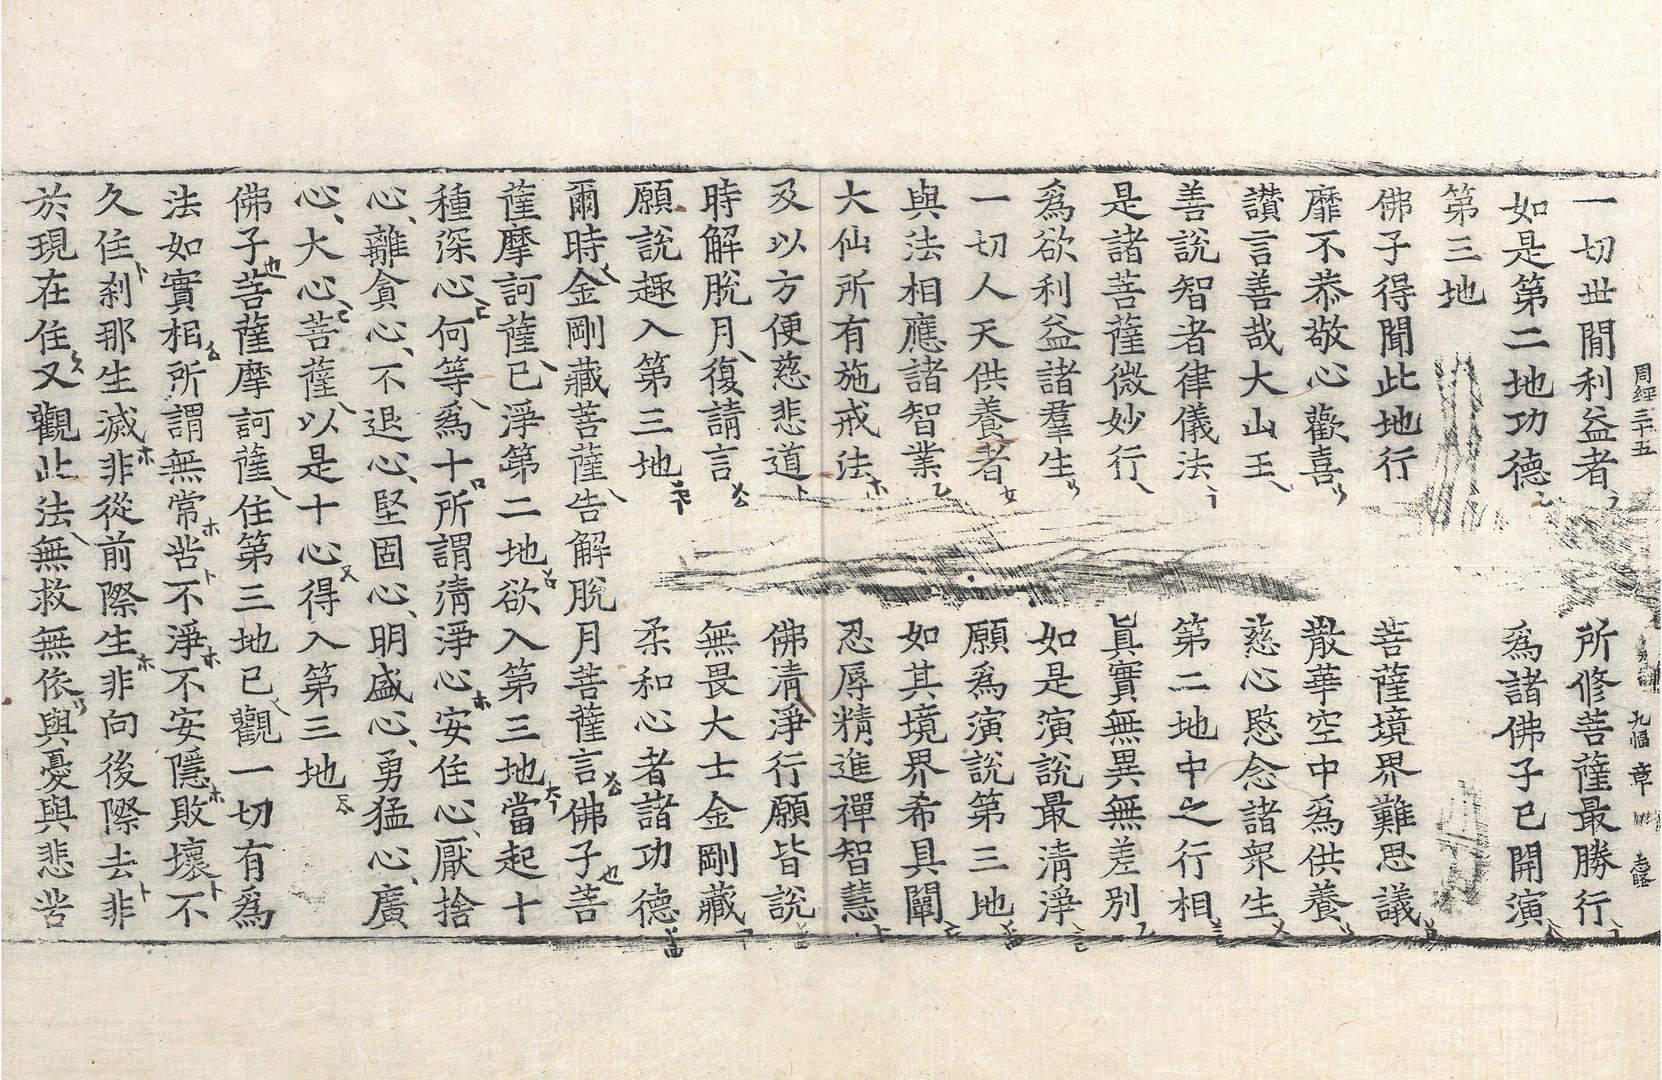 周經三十五　九幅
一切世閒利益者　所修菩薩最勝行
如是第二地功德　爲諸佛子已開演
第三地
佛子得聞此地行　菩薩境界難思議
靡不恭敬心歡喜　散華空中爲供養
讃言善哉大山王　慈心愍念諸衆生
善說智者律儀法　第二地中之行相
是諸菩薩微妙行　眞實無異無差別
爲欲利益諸羣生　如是演說最淸淨
一切人天供養者　願爲演說第三地
與法相應諸智業　如其境界希具闡
大仙所有施戒法　忍辱精進禪智慧
及以方便慈悲道　佛淸淨行願皆說
時解脫月復請言　無畏大士金剛藏
願說趣入第三地　柔和心者諸功德
爾時金剛藏菩薩告解脫月菩薩言佛子菩
薩摩訶薩已淨第二地欲入第三地當起十
種深心何等爲十所謂淸淨心安住心厭捨
心離貪心不退心堅固心明盛心勇猛心廣
心大心菩薩以是十心得入第三地
佛子菩薩摩訶薩住第三地已觀一切有爲
法如實相所謂無常苦不淨不安隱敗壞不
久住刹那生滅非從前際生非向後際去非
於現在住又觀此法無救無依與憂與悲苦